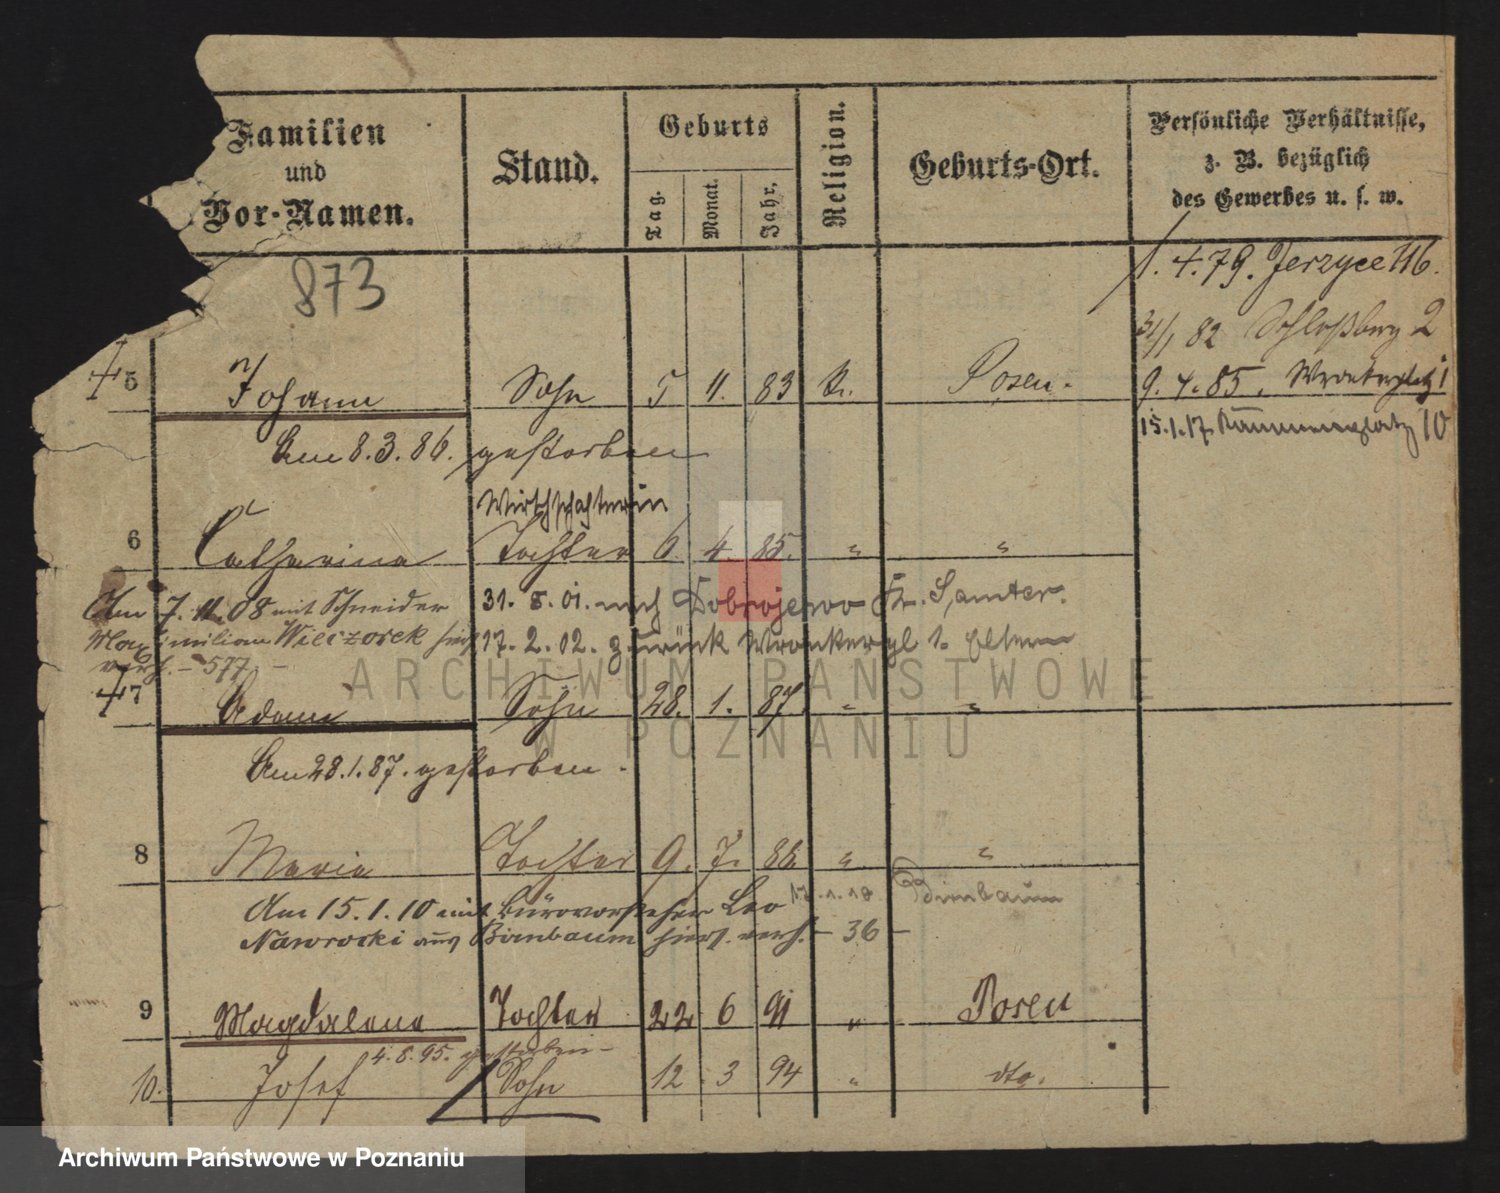 Familien
und
Vor-Namen.
Stand.
Geburts
Tag.
Monat.
Jahr.
Religion.
Geburts-Ort.
Persönliche Verhältnisse,
z. B. bezüglich
des Gewerbes u. s. w.
873
1. 4. 79. Jerzyce 116.
31/1 82 Schloßberg 2
9. 4. 85. Wronkerplatz 1
15.1.17. 10
5 Johann Sohn 5 11. 83 K. Posen.
Am 8.3.86. gestorben
Wirthschafterin
6 Catharina Tochter 6. 4. 85. " "
Am 7. 11. 08 mit Schneider
Maximilian Wieczorek hier
verh. - 577 -
31. 8. 01. nach Dobrojewo Kr. Samter.
17. 2. 02. zurück Wronkerpl 1. Eltern
7 Adam Sohn 28. 1. 87. " "
Am 28.1.87. gestorben.
8 Maria Tochter 9. 7. 88 " "
Am 15. 1. 10 mit Bürovorsteher Leo
Nawrocki aus Birnbaum hier verh. - 36 -
17.1.10 Birnbaum
9 Magdalena Tochter 22 6 91 " Posen
4. 8. 95. gestorben -
10. Josef Sohn 12 3 94 " dto.
ARCHIWUM PAŃSTWOWE
W POZNANIU
Archiwum Państwowe w Poznaniu